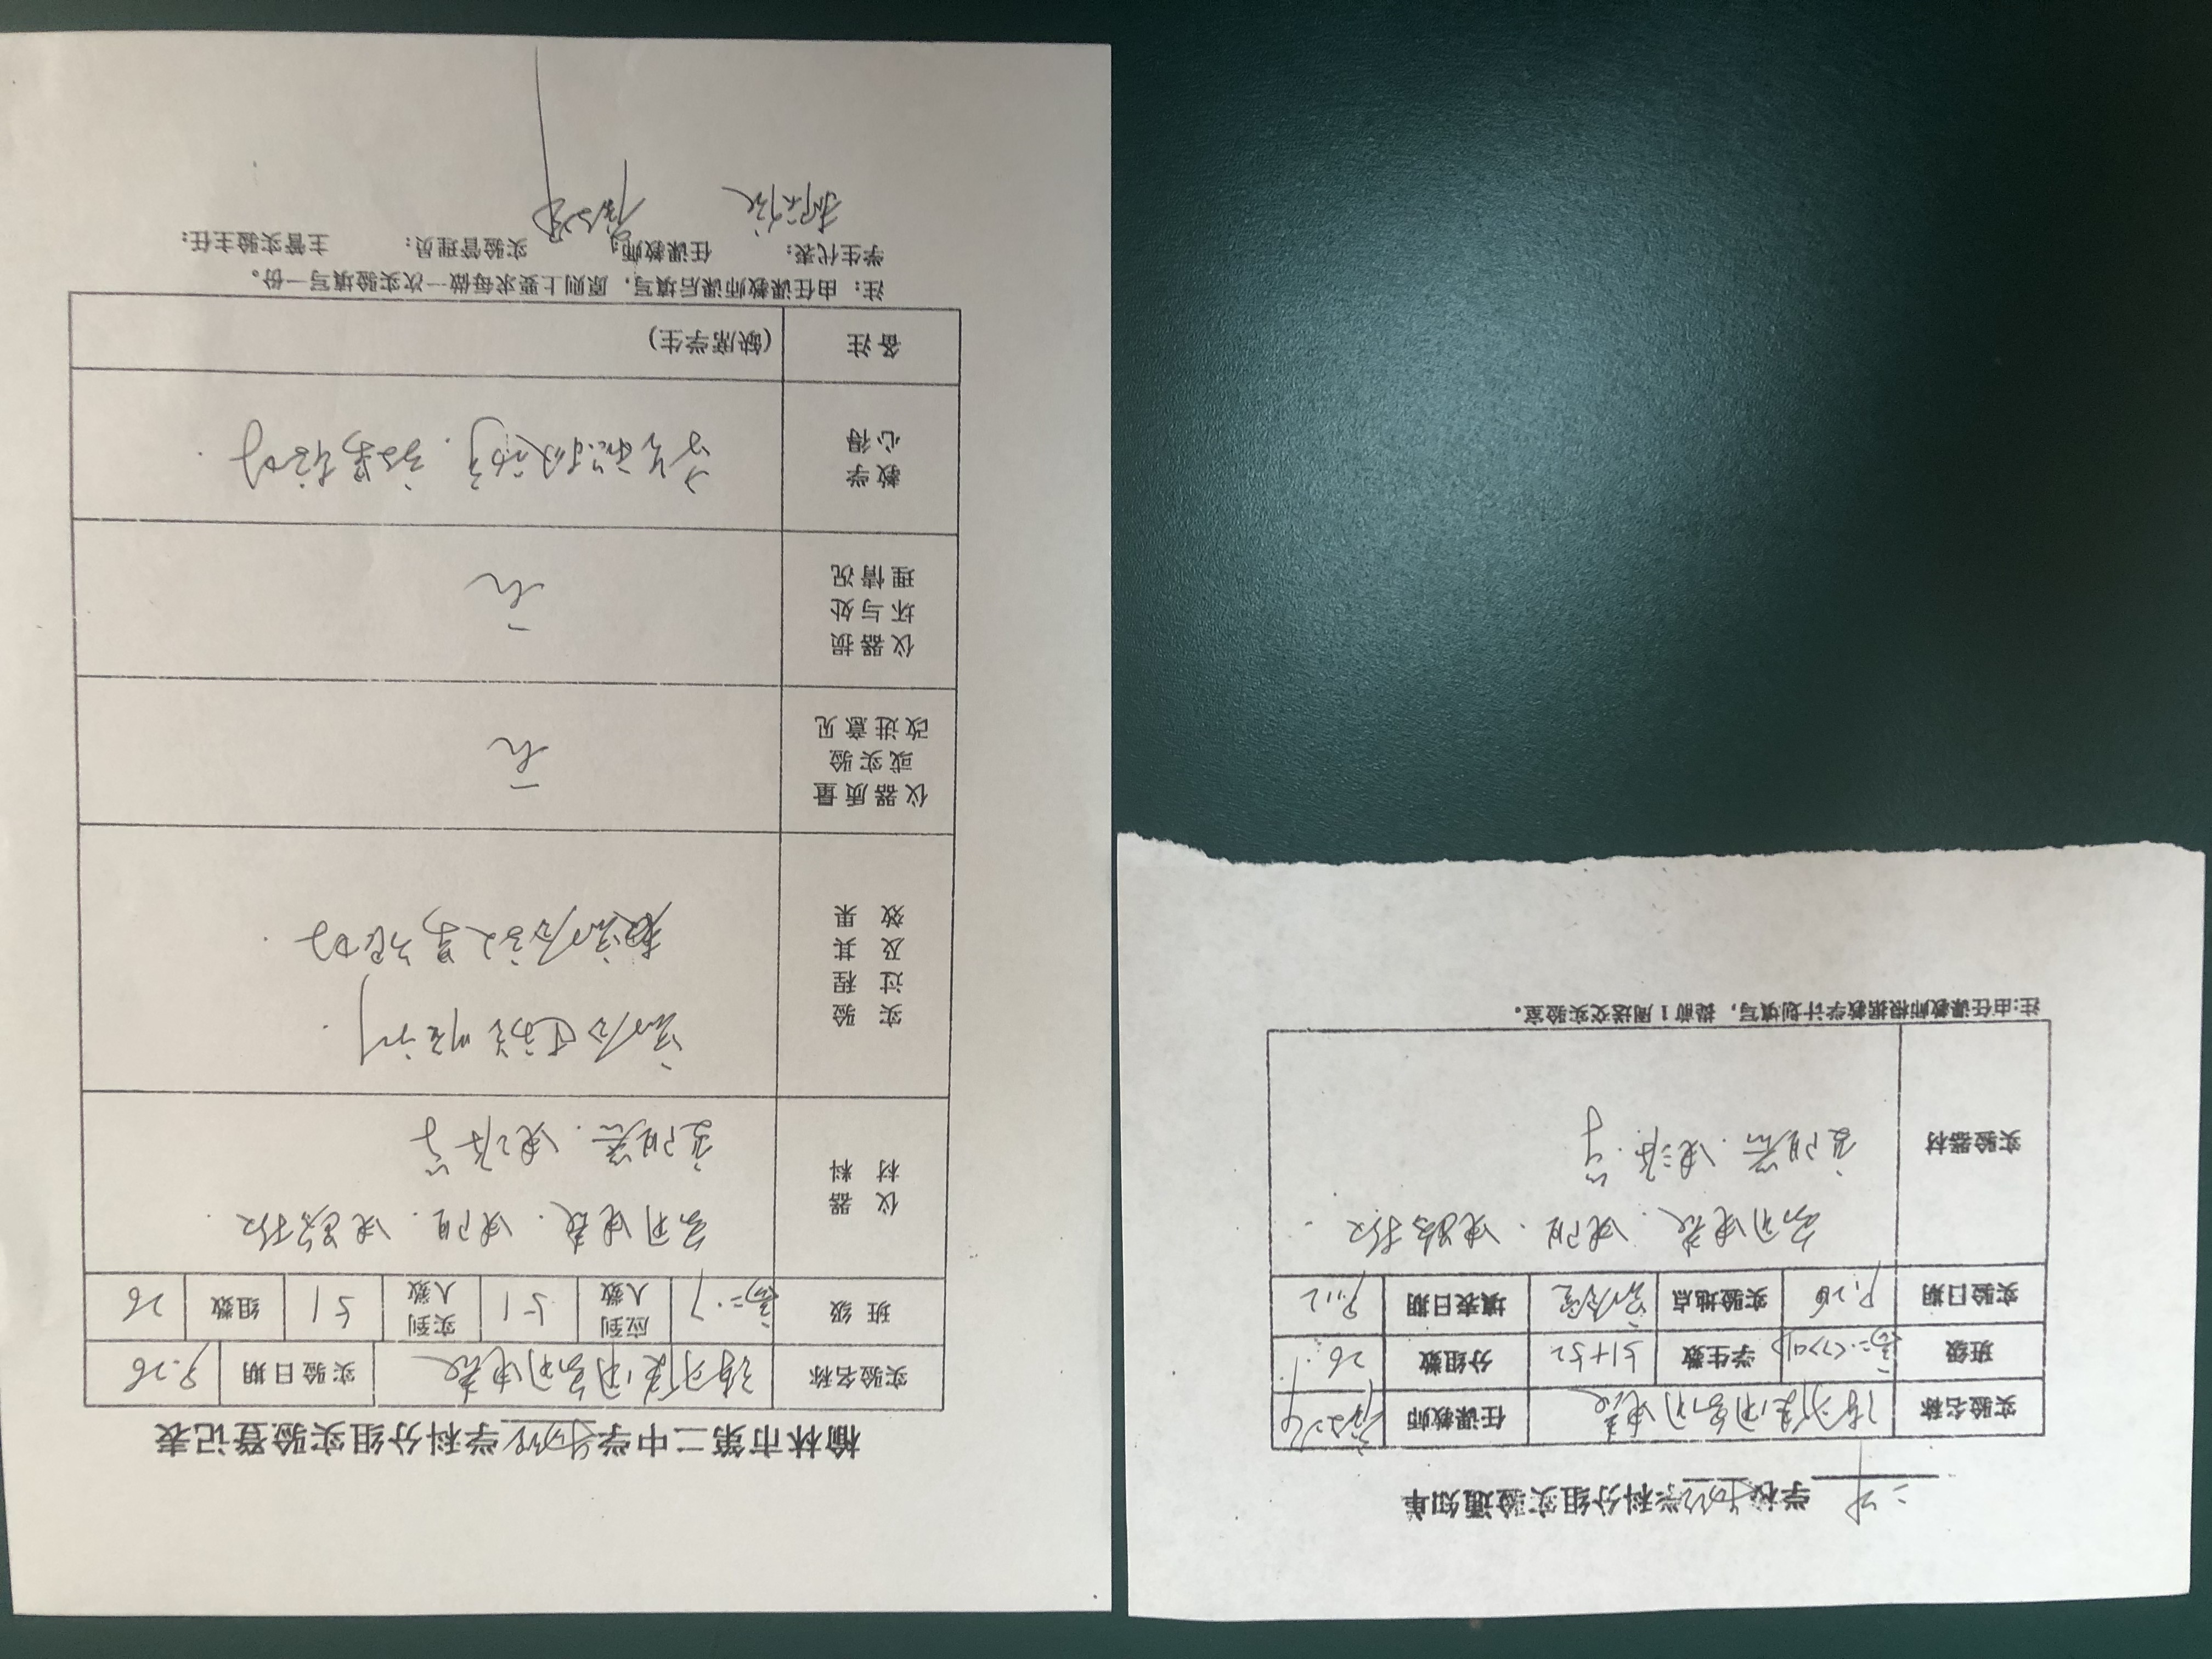 二中学校物理学科分组实验通知单
实验名称 练习使用多用电表 任课教师
班级 高二(7)(9) 学生数 51+52 分组数 26
实验日期 9.26 实验地点 实验室 填表日期 9.12
实验器材 多用电表. 电阻. 电路板.
变阻器. 电源. 等
注:由任课教师根据教学计划填写，提前1周送交实验室。
榆林市第二中学物理学科分组实验登记表
实验名称 练习使用多用电表 实验日期 9.26
班级 高二.7 应到人数 51 实到人数 51 组数 26
仪器材料 多用电表. 电阻. 电路板.
变阻器. 电源等
实验过程及其效果 实验过程顺利.
实验效果很好.
仪器质量或实验改进意见 无
仪器损坏与处理情况 无
教学心得 学生积极动手. 效果较好.
备注 (缺席学生)
注：由任课教师课后填写，原则上要求每做一次实验填写一份。
学生代表： 任课教师： 实验管理员： 主管实验主任：